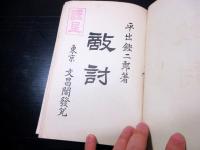 平出鏗二郎著
敵討
東京 文昌閣發兌